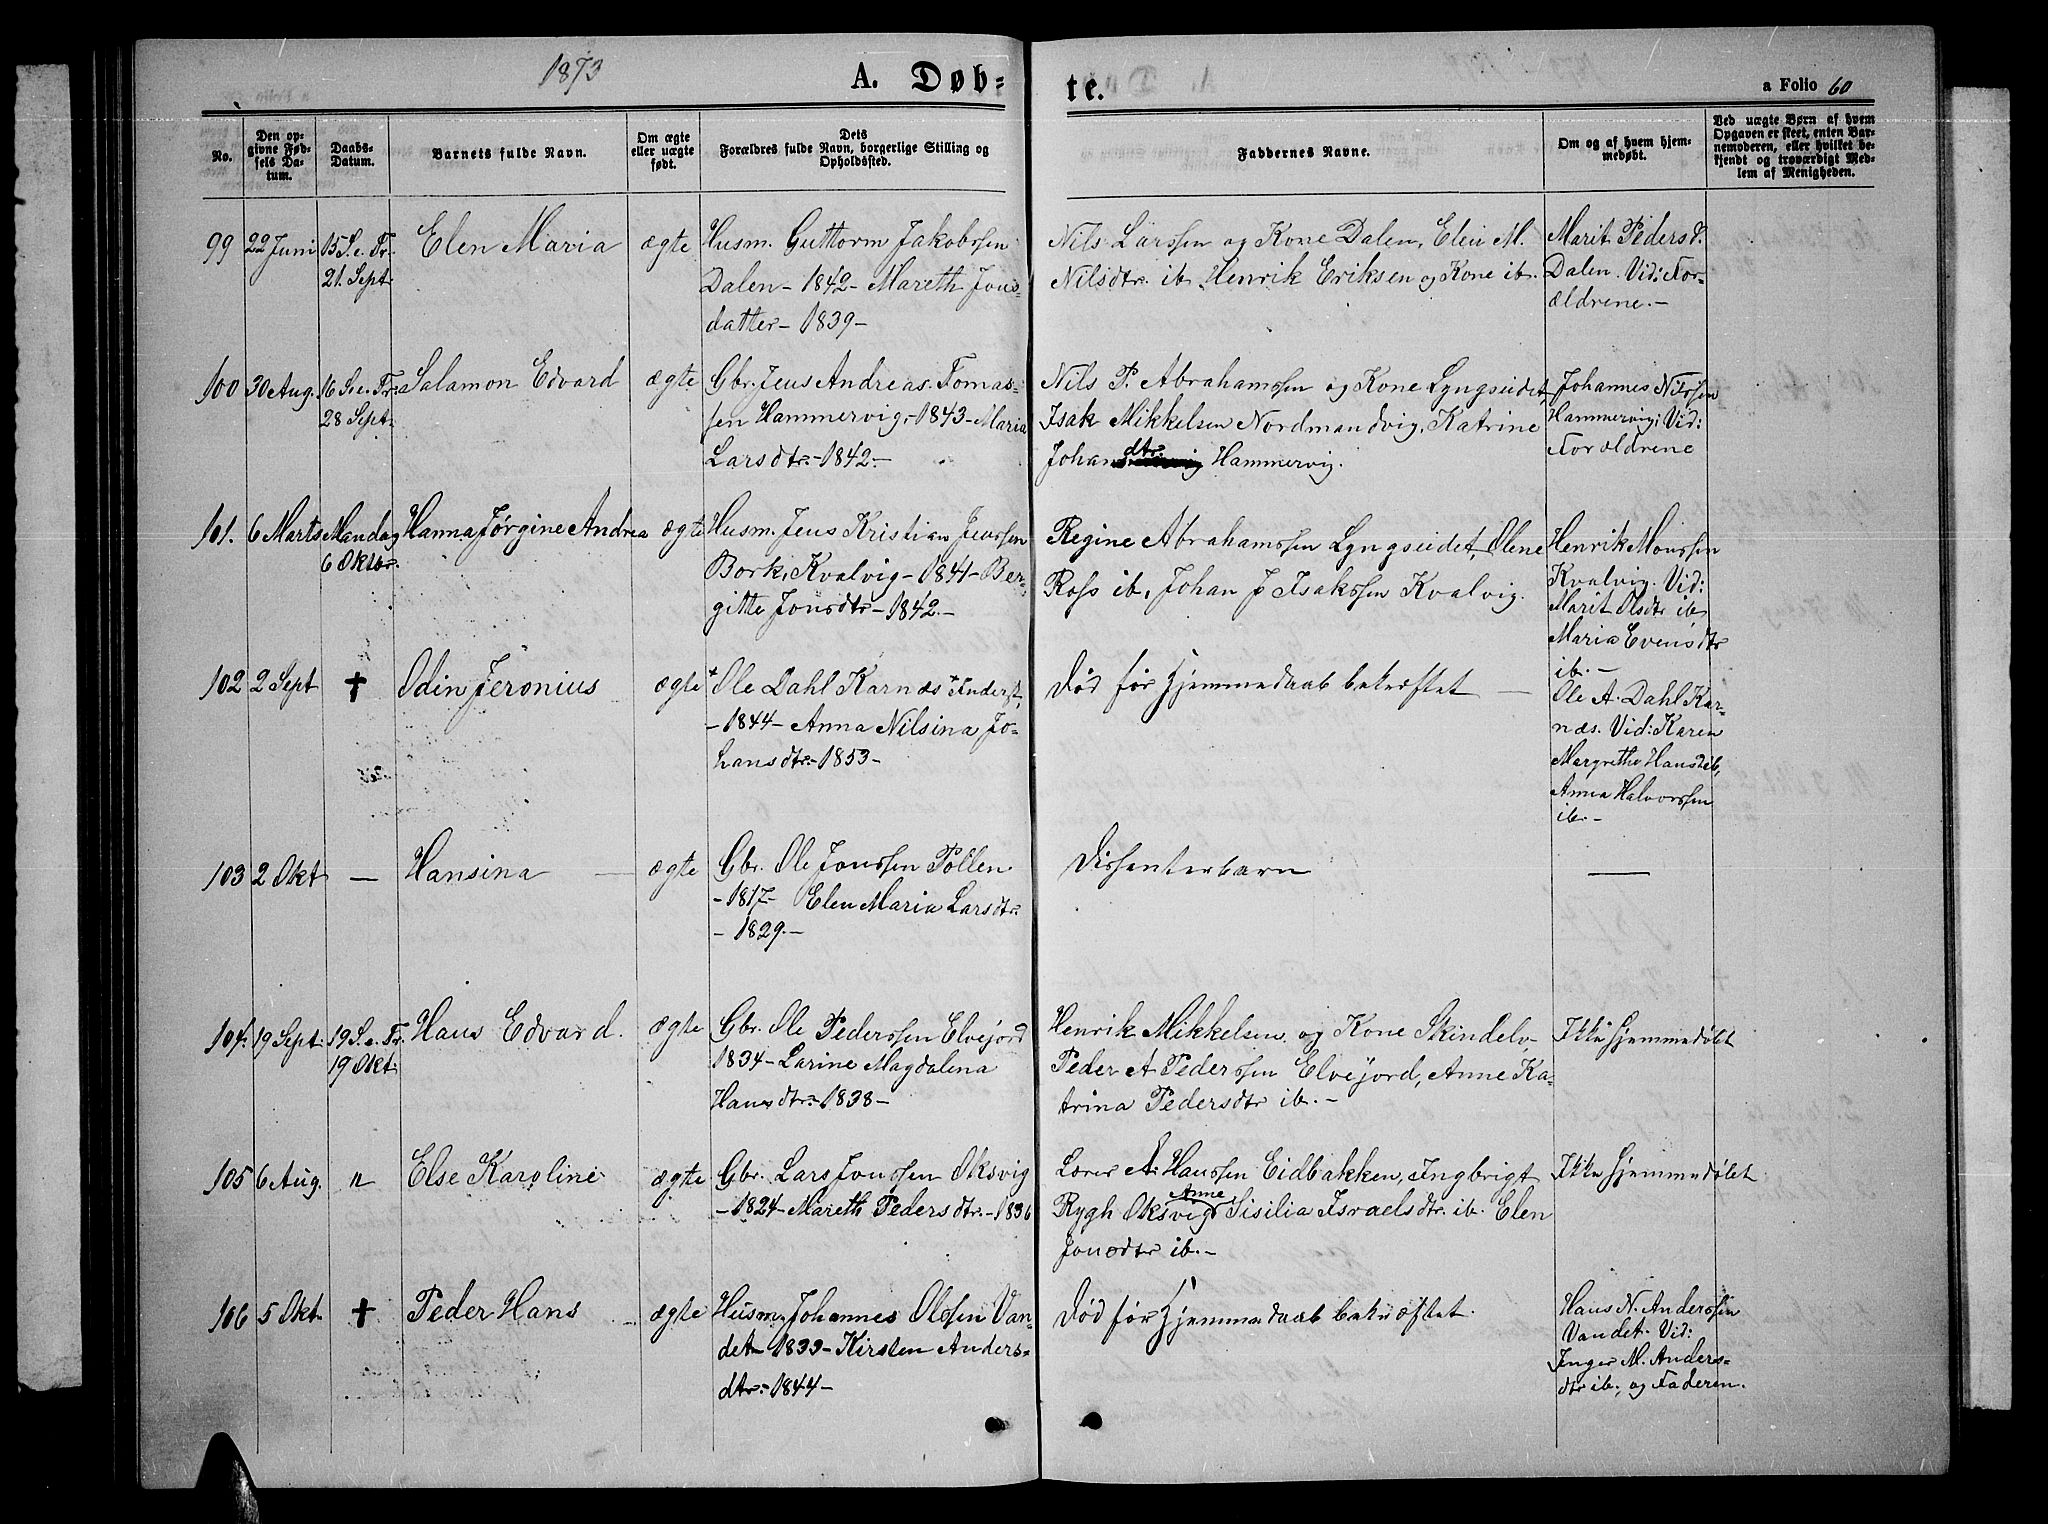 1873
A. Døb-
te.
a Folio 60
No.
Den op-
givne Fød-
sels Da-
tum.
Daabs-
Datum.
Barnets fulde Navn.
Om ægte
eller uægte
født.
Dets
Forældres fulde Navn, borgerlige Stilling og
Opholdssted.
Faddernes Navne.
Om og af hvem hjem-
medøbt.
Ved uægte Børn af hvem
Opgaven er skeet, enten Bar-
nemoderen, eller hvilket be-
kjendt og troværdigt Med-
lem af Menigheden.
99 22 Juni 15 S. e. Tr. 21. Sept
Elen Maria
ægte
Husm. Guttorm Jakobssen
Dalen - 1842 - Mareth Jons-
datter - 1839 -
Nils Larssen og Kone Dalen, Elen M.
Nilsdtr. ib. Henrik Eriksen og Kone ib.
Marit Pedersd.
Dalen. Vid: For-
ældrene. -
100 30 Aug. 16 S. e. Tr. 28 Sept.
Salamon Edvard
ægte
Gbr. Jens Andreas Tomas-
sen Hammervig - 1843 - Maria
Larsdtr. - 1842 -
Nils P. Abrahamssen og Kone Lyngseidet,
Isak Mikkelsen Nordmandvig, Katrine
Johansdtr. Hammervig.
Johannes Nilssen
Hammervig: Vid:
Forældrene
101. 6 Marts Mandag 6 Oktbr.
Hanna Jørgine Andrea
ægte
Husm. Jens Kristian Jenssen
Bork, Kvalvig - 1841 - Ber-
gitte Jonsdtr - 1842 -
Regine Abrahamssen Lyngseidet, Olene
Ross ib, Johan P Isakssen Kvalvig.
Henrik Monssen
Kvalvig. Vid:
Marit Olsdtr ib
Maria Evensdtr
ib. -
102 2 Sept †
Odin Jeronius
ægte
+ Ole Dahl Karnæs + Anderss.
- 1844 - Anna Nilsina, Jo-
hansdtr. - 1853 -
Død før Hjemmedaab bekræftet
Ole A. Dahl Kar-
næs. Vid: Karen
Margrethe Hansd ib,
Anna Halvorssen
ib. -
103 2 Okt -
Hansina
ægte
Gbr. Ole Jonssen Pollen
- 1817 - Elen Maria Larsdtr.
- 1829. -
Dissenterbarn
104. 19 Sept. 19 S. e. Tr. 19 Okt.
Hans Edvard.
ægte
Gbr. Ole Pederssen Elvejord
1834 - Larine Magdalena
Hansdtr. - 1838 -
Henrik Mikkelsen og Kone Skindelv,
Peder A Pederssen Elvejord, Anne Ka-
trina Pedersdtr ib. -
Ikke hjemmedøbt
105 6 Aug. "
Else Karoline
ægte
Gbr. Lars Jonssen Oksvig
- 1824 - Mareth Pedersdtr. - 1836
Lærer A. Hanssen Eidbakken, Ingbrigt
Rygh Oksvig, Anne Sisilia Israelsdtr. ib. Elen
Jonsdtr ib. -
Ikke hjemmedøbt
106 5 Okt. †
Peder Hans
ægte
Husm. Johannes Olssen Van-
det - 1833 - Kirsten Anders-
dtr. - 1844 -
Død før Hjemmedaab bekræftet.
Hans N. Anderssen
Vandet. Vid:
Inger M. Anders-
dtr ib., og Faderen.